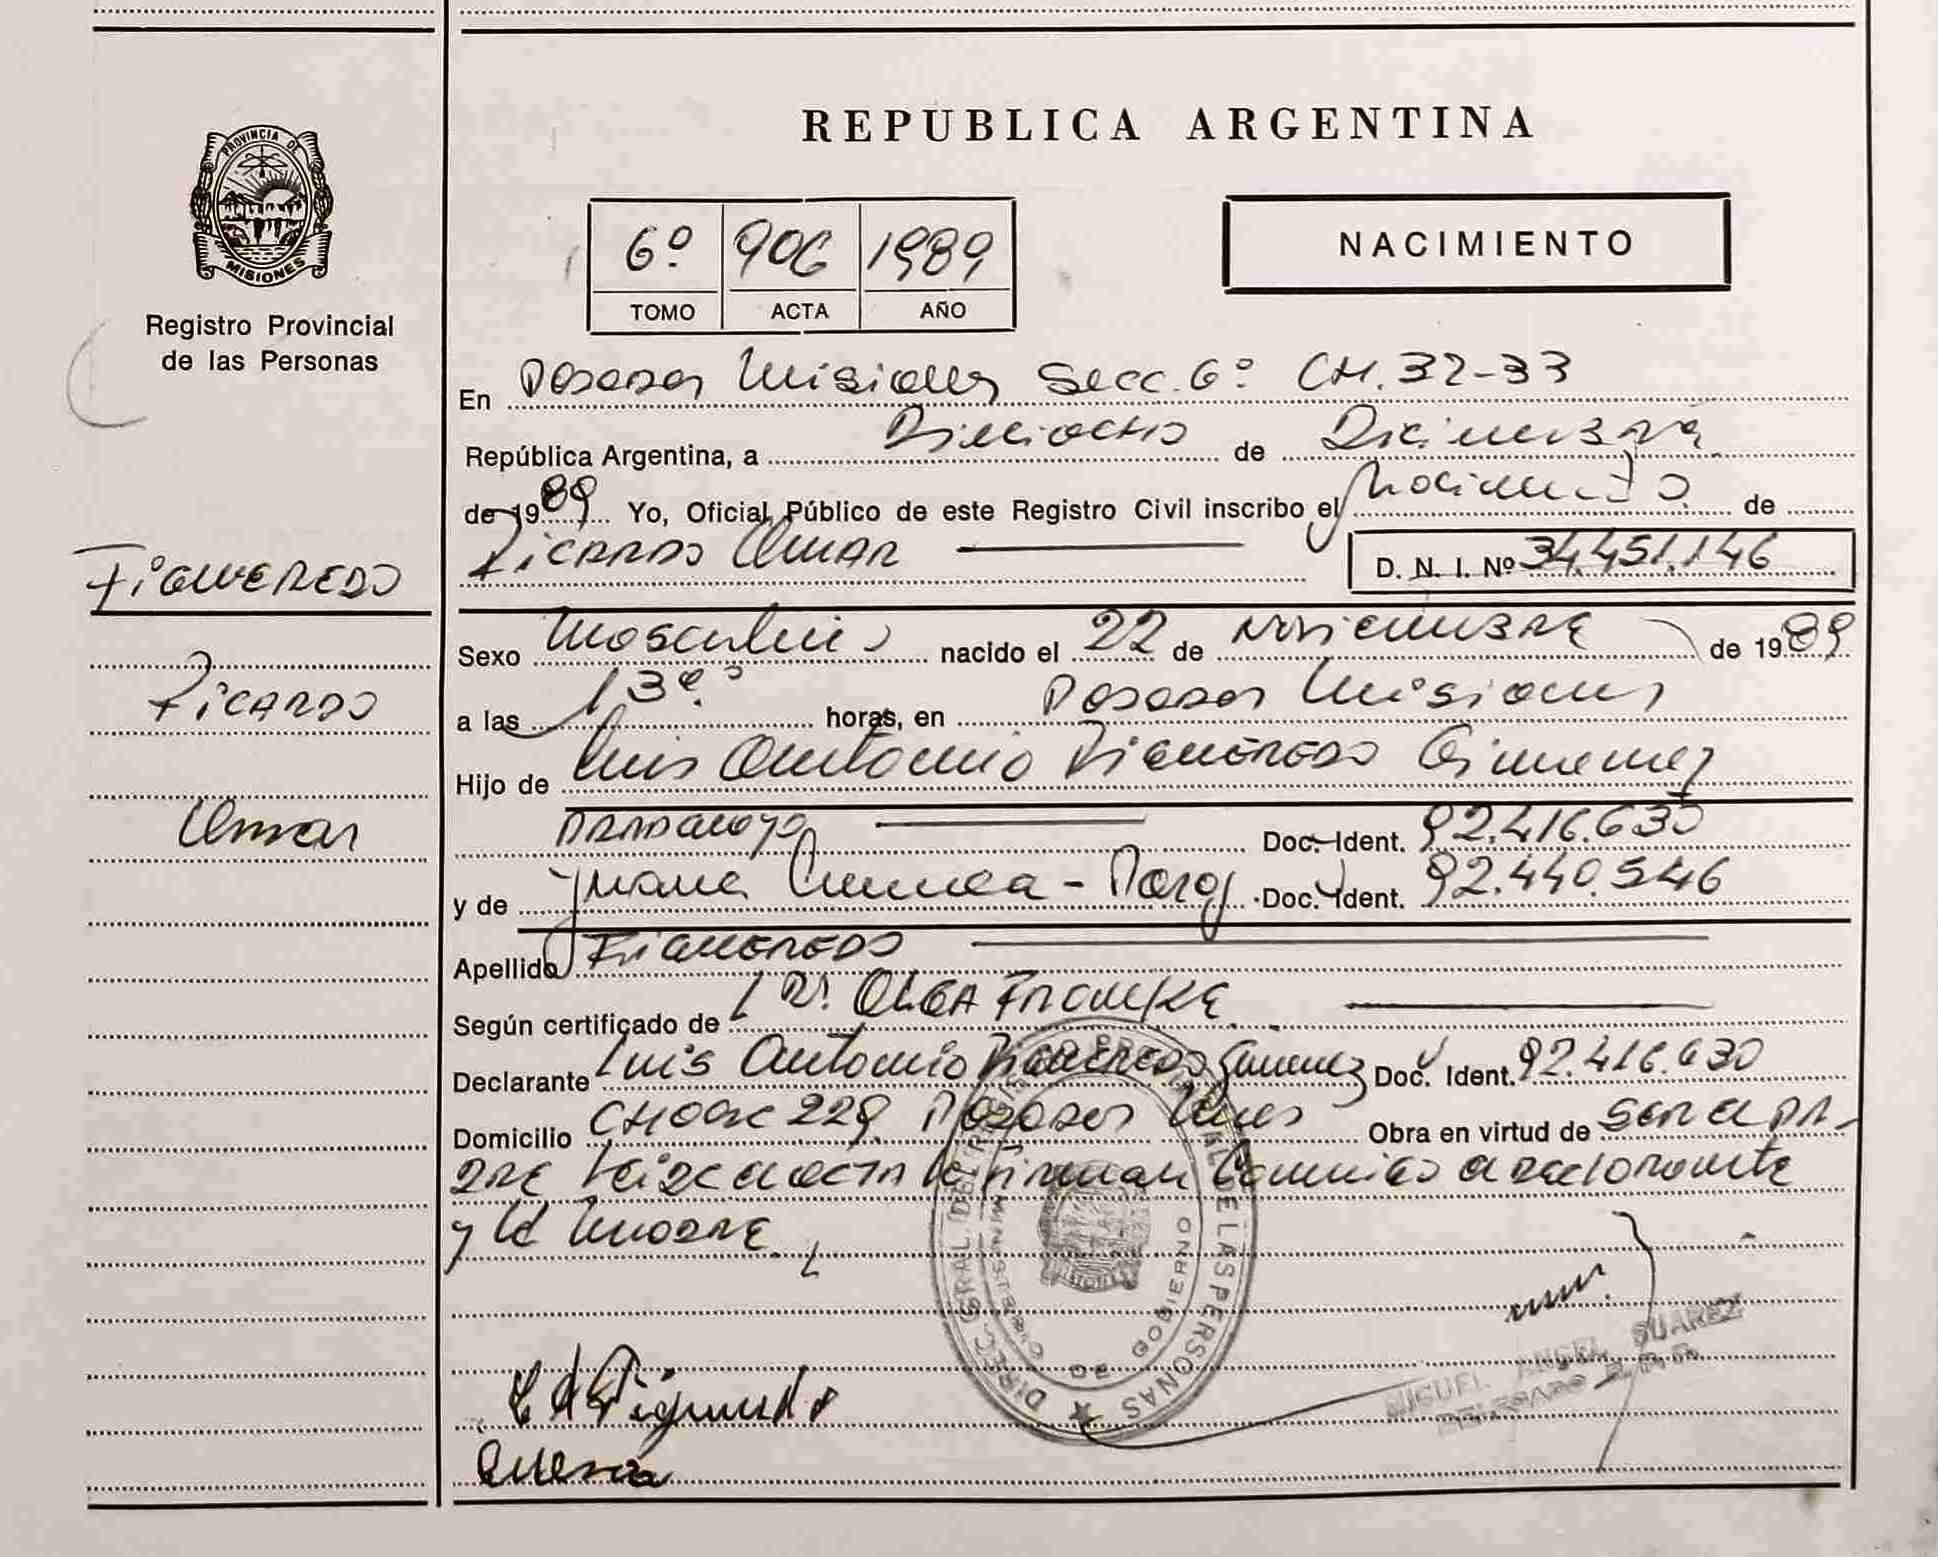 REPUBLICA ARGENTINA
PROVINCIA DE
MISIONES
Registro Provincial
de las Personas
6º 906 1989
TOMO ACTA AÑO
NACIMIENTO
En Posadas Misiones Secc. 6º CH. 32-33
República Argentina, a Dieciocho de Diciembre
de 1989 Yo, Oficial Público de este Registro Civil inscribo el Nacimiento de
Ricardo Omar D. N. I. Nº 34.451.146
Figueredo
Ricardo
Omar
Sexo Masculino nacido el 22 de Noviembre de 1989
a las 13 horas, en Posadas Misiones
Hijo de Luis Antonio Figueredo Gimenez
Paraguayo Doc. Ident. 92.416.630
y de Juana Doc. Ident. 92.440.546
Apellido Figueredo
Según certificado de Dr. Olga
Declarante Luis Antonio Figueredo Gimenez Doc. Ident. 92.416.630
Domicilio 229 Posadas Mnes Obra en virtud de ser el pa-
dre Leida el acta la firman conmigo el declarante
y la madre
DIREC. GRAL. DEL REGISTRO PROVINCIAL DE LAS PERSONAS
MINISTERIO DE GOBIERNO
MIGUEL ANGEL SUAREZ
DELEGADO R.P.P.